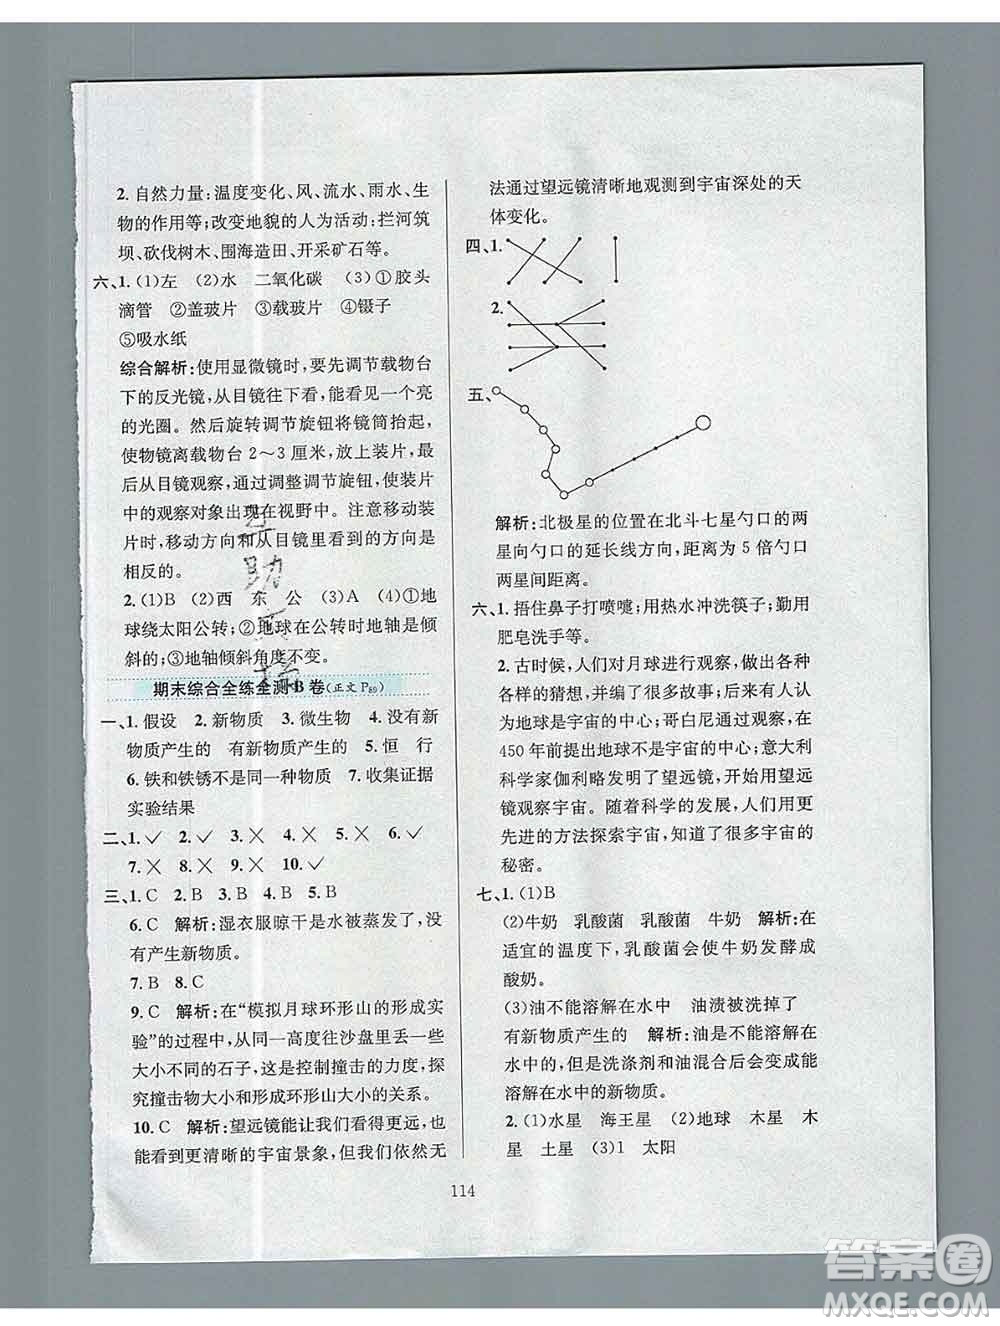 2. 自然力量:温度变化、风、流水、雨水、生
物的作用等;改变地貌的人为活动:拦河筑
坝、砍伐树木、围海造田、开采矿石等。
六、1. (1)左 (2)水 二氧化碳 (3)①胶头
滴管 ②盖玻片 ③载玻片 ④镊子
⑤吸水纸
综合解析:使用显微镜时,要先调节载物台
下的反光镜,从目镜往下看,能看见一个亮
的光圈。然后旋转调节旋钮将镜筒抬起,
使物镜离载物台 2～3 厘米,放上装片,最
后从目镜观察,通过调整调节旋钮,使装片
中的观察对象出现在视野中。注意移动装
片时,移动方向和从目镜里看到的方向是
相反的。
2. (1)B (2)西 东 公 (3)A (4)①地
球绕太阳公转;②地球在公转时地轴是倾
斜的;③地轴倾斜角度不变。
期末综合全练全测·B 卷(正文 P89)
一、1. 假设 2. 新物质 3. 微生物 4. 没有新
物质产生的 有新物质产生的 5. 恒 行
6. 铁和铁锈不是同一种物质 7. 收集证据
实验结果
二、1. ✓ 2. ✓ 3. ✕ 4. ✕ 5. ✕ 6. ✓
7. ✕ 8. ✕ 9. ✕ 10. ✓
三、1. C 2. B 3. B 4. B 5. B
6. C 解析:湿衣服晾干是水被蒸发了,没
有产生新物质。
7. B 8. C
9. C 解析:在“模拟月球环形山的形成实
验”的过程中,从同一高度往沙盘里丢一些
大小不同的石子,这是控制撞击的力度,探
究撞击物大小和形成环形山大小的关系。
10. C 解析:望远镜能让我们看得更远,也
能看到更清晰的宇宙景象,但我们依然无
法通过望远镜清晰地观测到宇宙深处的天
体变化。
四、1.
2.
五、
解析:北极星的位置在北斗七星勺口的两
星向勺口的延长线方向,距离为 5 倍勺口
两星间距离。
六、1. 捂住鼻子打喷嚏;用热水冲洗筷子;勤用
肥皂洗手等。
2. 古时候,人们对月球进行观察,做出各种
各样的猜想,并给它们命名;后来人们认
为地球是宇宙的中心;哥白尼通过观察,在
450 年前提出地球不是宇宙的中心;意大利
科学家伽利略发明了望远镜,开始用望远
镜观察宇宙。随着科学的发展,人们用更
先进的方法探索宇宙,知道了很多宇宙的
秘密。
七、1. (1)B
(2)牛奶 乳酸菌 乳酸菌 牛奶 解析:在
适宜的温度下,乳酸菌会使牛奶发酵成
酸奶。
(3)油不能溶解在水中 油渍被洗掉了
有新物质产生的 解析:油是不能溶解在
水中的,但是洗涤剂和油混合后会变成能
溶解在水中的新物质。
2. (1)水星 海王星 (2)地球 木星 木
星 土星 (3)1 太阳
114
答案圈
MXQE.COM